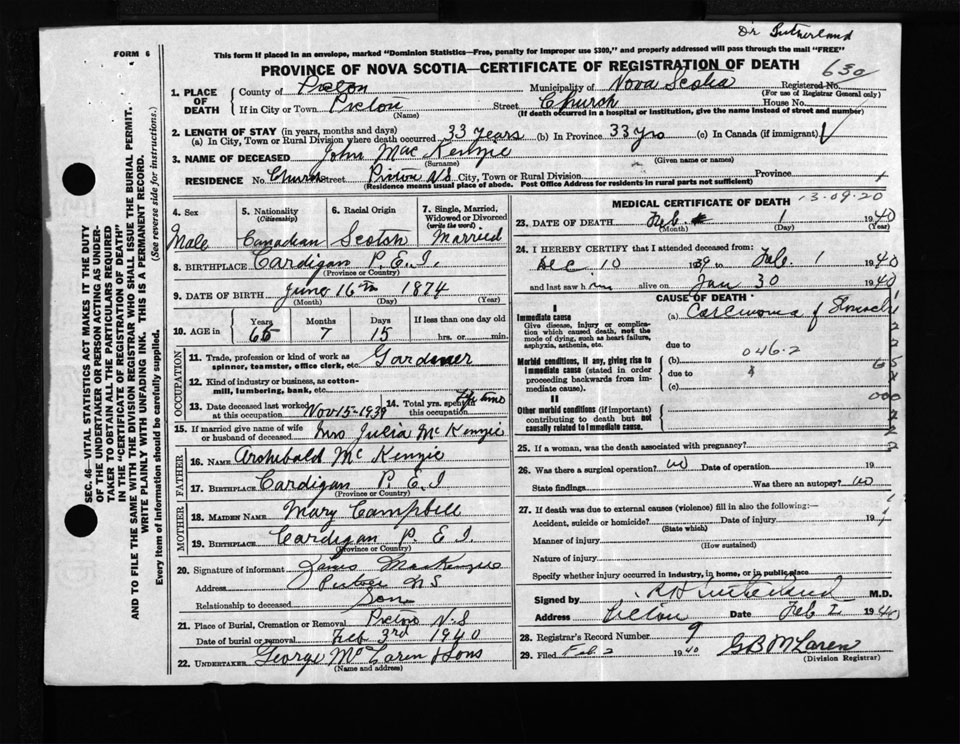 Dr Sutherland
FORM 6
This form if placed in an envelope, marked "Dominion Statistics—Free, penalty for improper use $300," and properly addressed will pass through the mail "FREE"
PROVINCE OF NOVA SCOTIA—CERTIFICATE OF REGISTRATION OF DEATH
630
1. PLACE OF DEATH
County of Pictou Municipality of Nova Scotia Registered No.
(For use of Registrar General only)
If in City or Town Pictou Street Church House No.
(Name) (If death occurred in a hospital or institution, give the name instead of street and number)
2. LENGTH OF STAY (in years, months and days)
(a) In City, Town or Rural Division where death occurred 33 years (b) In Province 33 yrs (c) In Canada (if immigrant)
3. NAME OF DECEASED John Mac Kenzie
(Surname) (Given name or names)
RESIDENCE No. Church Street Pictou N S City, Town or Rural Division Province
(Residence means usual place of abode. Post Office Address for residents in rural parts not sufficient)
4. Sex Male
5. Nationality (Citizenship) Canadian
6. Racial Origin Scotch
7. Single, Married, Widowed or Divorced (write the word) Married
8. BIRTHPLACE Cardigan P. E. I.
(Province or Country)
9. DATE OF BIRTH June 16th 1874
(Month) (Day) (Year)
10. AGE in Years Months Days If less than one day old
65 7 15 hrs. or min.
OCCUPATION
11. Trade, profession or kind of work as spinner, teamster, office clerk, etc. Gardner
12. Kind of industry or business, as cotton-mill, lumbering, bank, etc.
13. Date deceased last worked at this occupation Nov 15-1939
14. Total yrs. spent in this occupation Life time
15. If married give name of wife or husband of deceased Mrs Julia Mc Kenzie
FATHER
16. NAME Archibald Mc Kenzie
17. BIRTHPLACE Cardigan P E I
(Province or Country)
MOTHER
18. MAIDEN NAME Mary Campbell
19. BIRTHPLACE Cardigan P. E. I.
(Province or Country)
20. Signature of informant James MacKenzie
Address Pictou N S
Relationship to deceased Son
21. Place of Burial, Cremation or Removal Pictou N. S
Date of burial or removal Feb 3rd 1940
22. UNDERTAKER George McLaren & Sons
(Name and address)
MEDICAL CERTIFICATE OF DEATH
3-09-20
23. DATE OF DEATH Feb. 1 1940
(Month) (Day) (Year)
24. I HEREBY CERTIFY that I attended deceased from:
Dec. 10 1939 to Feb. 1 1940
and last saw him alive on Jan 30 1940
CAUSE OF DEATH
I
Immediate cause (a) Carcinoma of Stomach
Give disease, injury or complication which caused death, not the mode of dying, such as heart failure, asphyxia, asthenia, etc.
due to
046.2
Morbid conditions, if any, giving rise to immediate cause (stated in order proceeding backwards from immediate cause).
(b)
due to
(c)
II
Other morbid conditions (if important) contributing to death but not causally related to immediate cause.
25. If a woman, was the death associated with pregnancy?
26. Was there a surgical operation? no Date of operation 19
State findings Was there an autopsy? no
27. If death was due to external causes (violence) fill in also the following:—
Accident, suicide or homicide? Date of injury 19
(State which)
Manner of injury
(How sustained)
Nature of injury
Specify whether injury occurred in industry, in home, or in public place
Signed by Sutherland M.D.
Address Pictou Date Feb 2 1940
28. Registrar's Record Number 9
29. Filed Feb 2 1940 G B McLaren
(Division Registrar)
SEC. 46—VITAL STATISTICS ACT MAKES IT THE DUTY
OF THE UNDERTAKER OR PERSON ACTING AS UNDER-
TAKER TO OBTAIN ALL THE PARTICULARS REQUIRED
IN THE "CERTIFICATE OF REGISTRATION OF DEATH"
AND TO FILE THE SAME WITH THE DIVISION REGISTRAR WHO SHALL ISSUE THE BURIAL PERMIT.
WRITE PLAINLY WITH UNFADING INK. THIS IS A PERMANENT RECORD.
Every item of information should be carefully supplied. (See reverse side for instructions.)